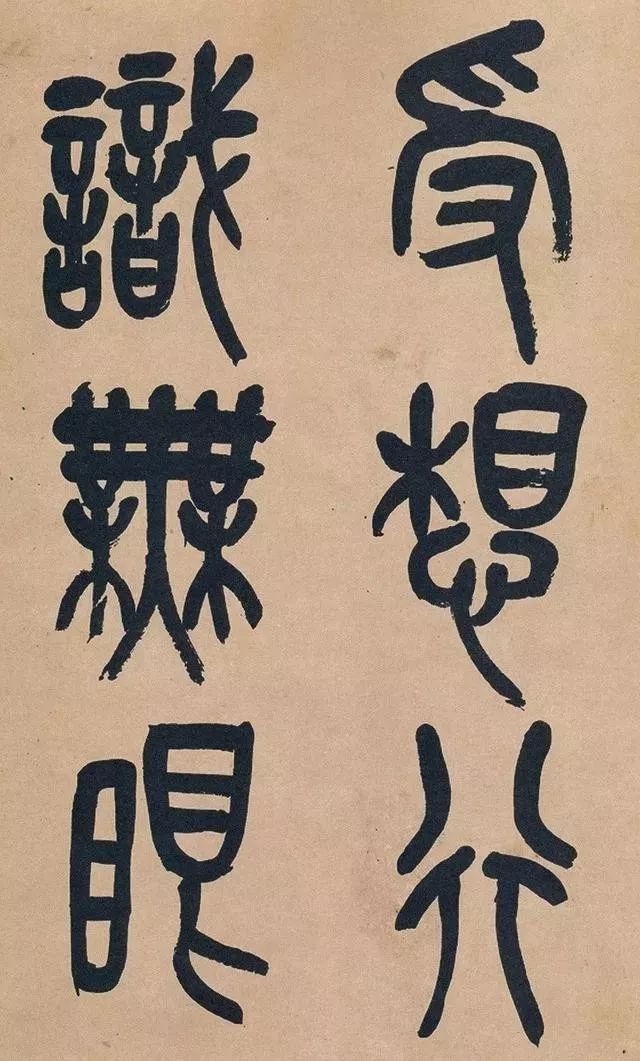 受想行
識無眼